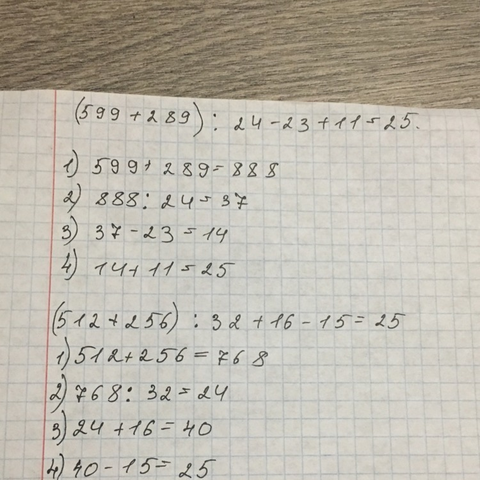 (599+289): 24-23+11=25.
1) 599+289=888
2) 888:24=37
3) 37-23=14
4) 14+11=25
(512+256):32+16-15=25
1) 512+256=768
2) 768:32=24
3) 24+16=40
4) 40-15=25